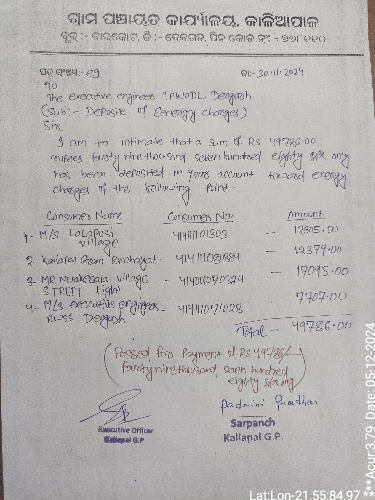 ଗ୍ରାମ ପଞ୍ଚାୟତ କାର୍ଯ୍ୟାଳୟ, କାଳିଆପାଳ
ବ୍ଲକ୍ :- ବାରକୋଟ, ଜି :- ଦେବଗଡ, ପିନ କୋଡ ନଂ - ୭୬୮୧୧୦
ପତ୍ର ସଂଖ୍ୟା :-
ତା:- 30.11.2024
To
The executive engineer TPWODL, Deogarh
(Sub:- Deposite of Eenergy charges)
Sir,
I am to intimate that a sum of Rs 49786.00
rupees fourty nine thousand seven hundred eighty six only
has been deposited in yours account toward energy
charges of the following point.
Consumer Name Consumer No. Amount
1- M/S
Village - 12605.00
2 Gram Panchayat - - 12379.00
3 MR Nuakesala village
STREET Light - 17095.00
4- M/s executive engineer
RWSS Deogarh 7707.00
Total - 49786.00
(Passed for Payment of Rs 49786/-
fourty nine thousand, seven hundred
eighty six only)
Executive Officer
Kaliapal G.P
Padmini Pradhan
Sarpanch
Kaliapal G.P.
Lat:Lon-21.55:84.97
***Acur:3.79 Date:05-12-2024